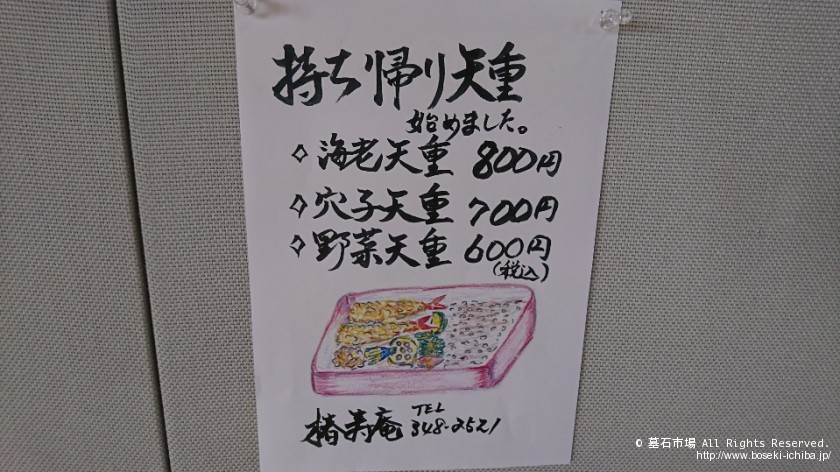 持ち帰り天重
始めました。
◇海老天重 800円
◇穴子天重 700円
◇野菜天重 600円
(税込)
椿寿庵 TEL 348-2521
© 墓石市場 All Rights Reserved.
http://www.boseki-ichiba.jp/